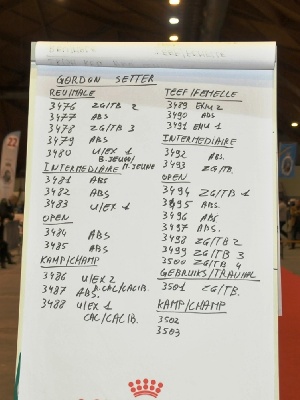 GORDON SETTER
REU/MALE
3476 ZG/TB 2
3477 ABS
3478 ZG/TB 3
3479 ABS
3480 U/EX 1
B.JEUGD/M.JEUNE
INTERMEDIAIRE
3481 ABS
3482 ABS
3483 U/EX 1
OPEN
3484 ABS
3485 ABS
KAMP/CHAMP
3486 U/EX 2
R.CAC/CACIB.
3487 ABS.
3488 U/EX 1
CAC/CACIB.
TEEF/FEMELLE
3489 2
3490 ABS
3491 1
INTERMEDIAIRE
3492 ABS.
3493 ZG/TB.
OPEN
3494 ZG/TB 1
3495 ABS.
3496 ABS
3497 ABS.
3498 ZG/TB 2
3499 ZG/TB 3
3500 ZG/TB 4
GEBRUIKS/TRAVAIL
3501 ZG/TB.
KAMP/CHAMP
3502
3503
22